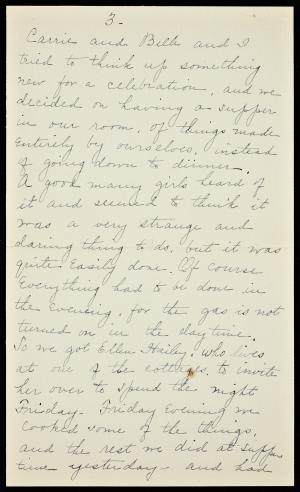 3-
Carrie and Belle and I
tried to think up something
new for a celebration, and we
decided on having a supper
in our room, of things made
entirely by ourselves, instead
of going down to dinner.
A good many girls heard of
it and seemed to think it
was a very strange and
daring thing to do, but it was
quite easily done. Of course
everything had to be done in
the evening, for the gas is not
turned on in the daytime.
So we got Ellen Hailey, who lives
at one of the cottages, to invite
her over to spend the night
Friday. Friday evening we
cooked some of the things,
and the rest we did at supper
time yesterday - and had